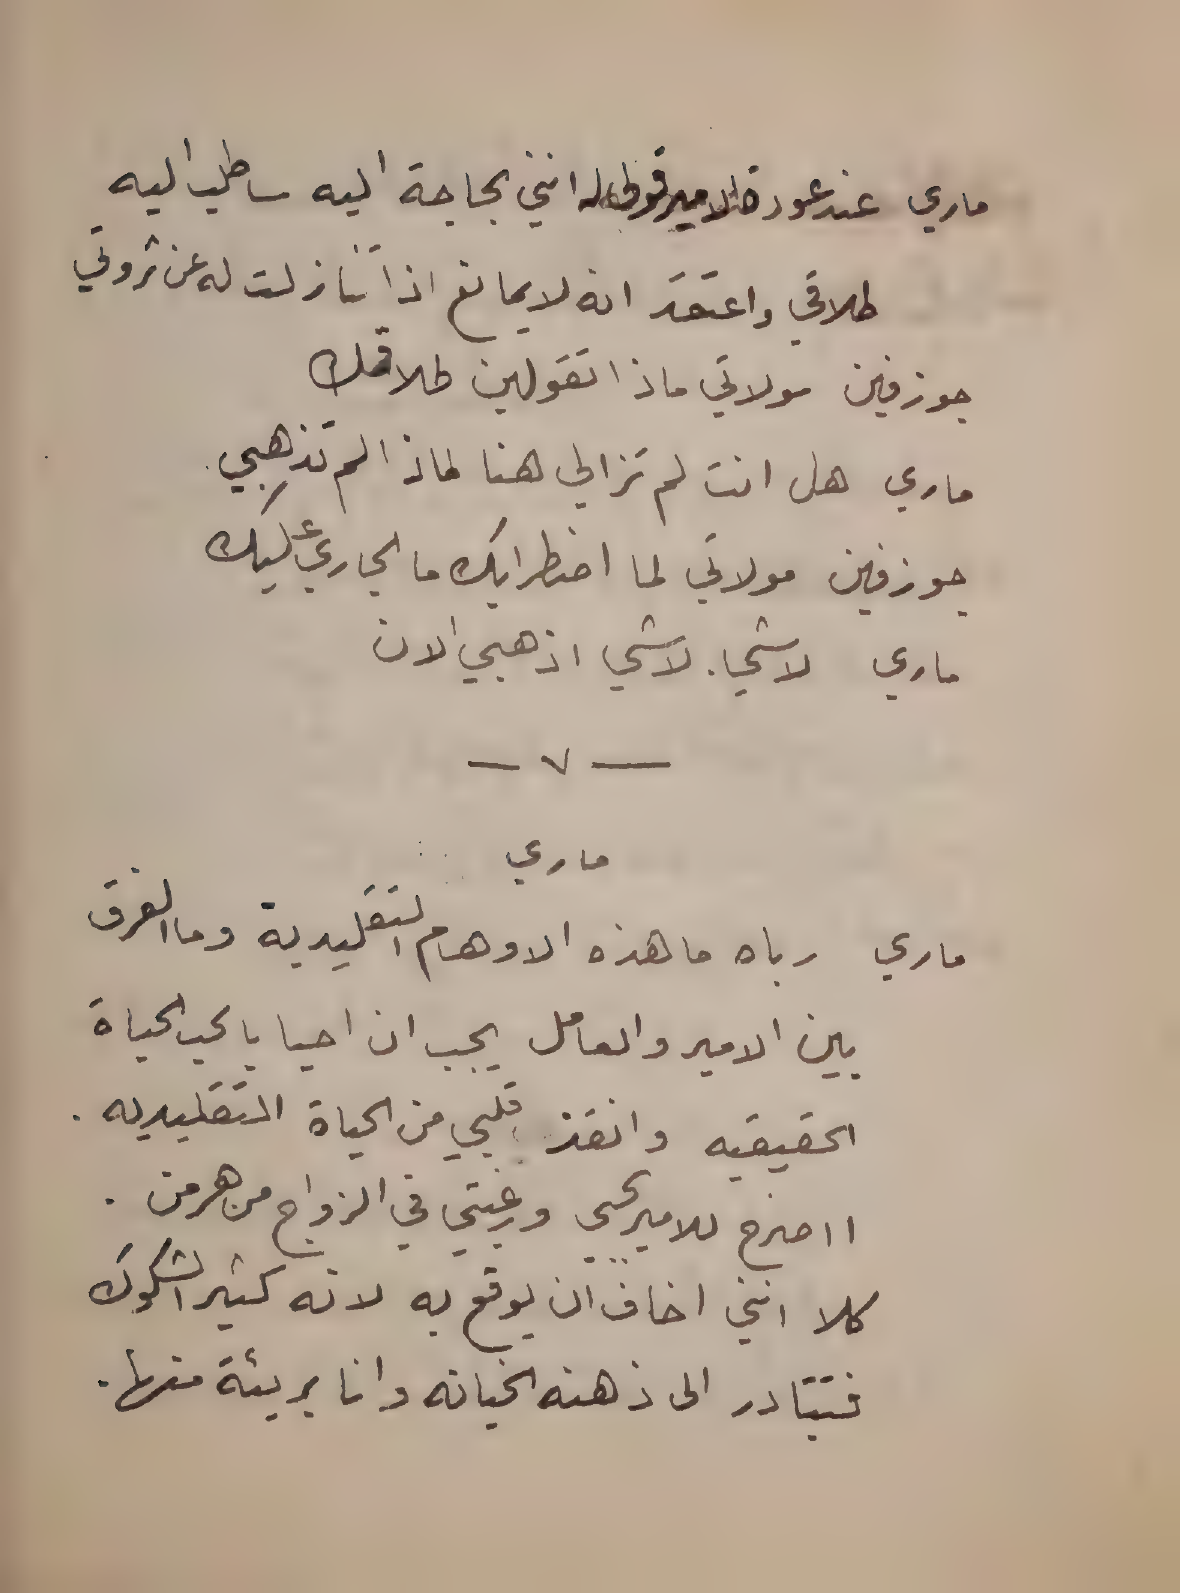 ماري عندعودة الامير قولي له انني بحاجة اليه ساطلب اليه
طلاقي واعتقد انه لايمانع اذا تنازلت له عن ثروتي
جوزفين مولاتي ماذا تقولين طلاقك
ماري هل انت لم تزالي هنا لماذا لم تذهبي.
جوزفين مولاتي لما اضطرابك ما الجاري عليك
ماري لاشي. لاشي اذهبي الان
— ٧ —
ماري
ماري رباه ما هذه الاوهام التقليدية وما الفرق
بين الامير والعامل يجب ان احيا بالحب الحياة
الحقيقيه وانقذ قلبي من الحياة التقليديه.
ااصرح للامير بحبي ورغبتي في الزواج من هرمن.
كلا انني اخاف ان يوقع به لانه كثير الشكوك
فتتبادر الى ذهنه الخيانه وانا بريئة منها.